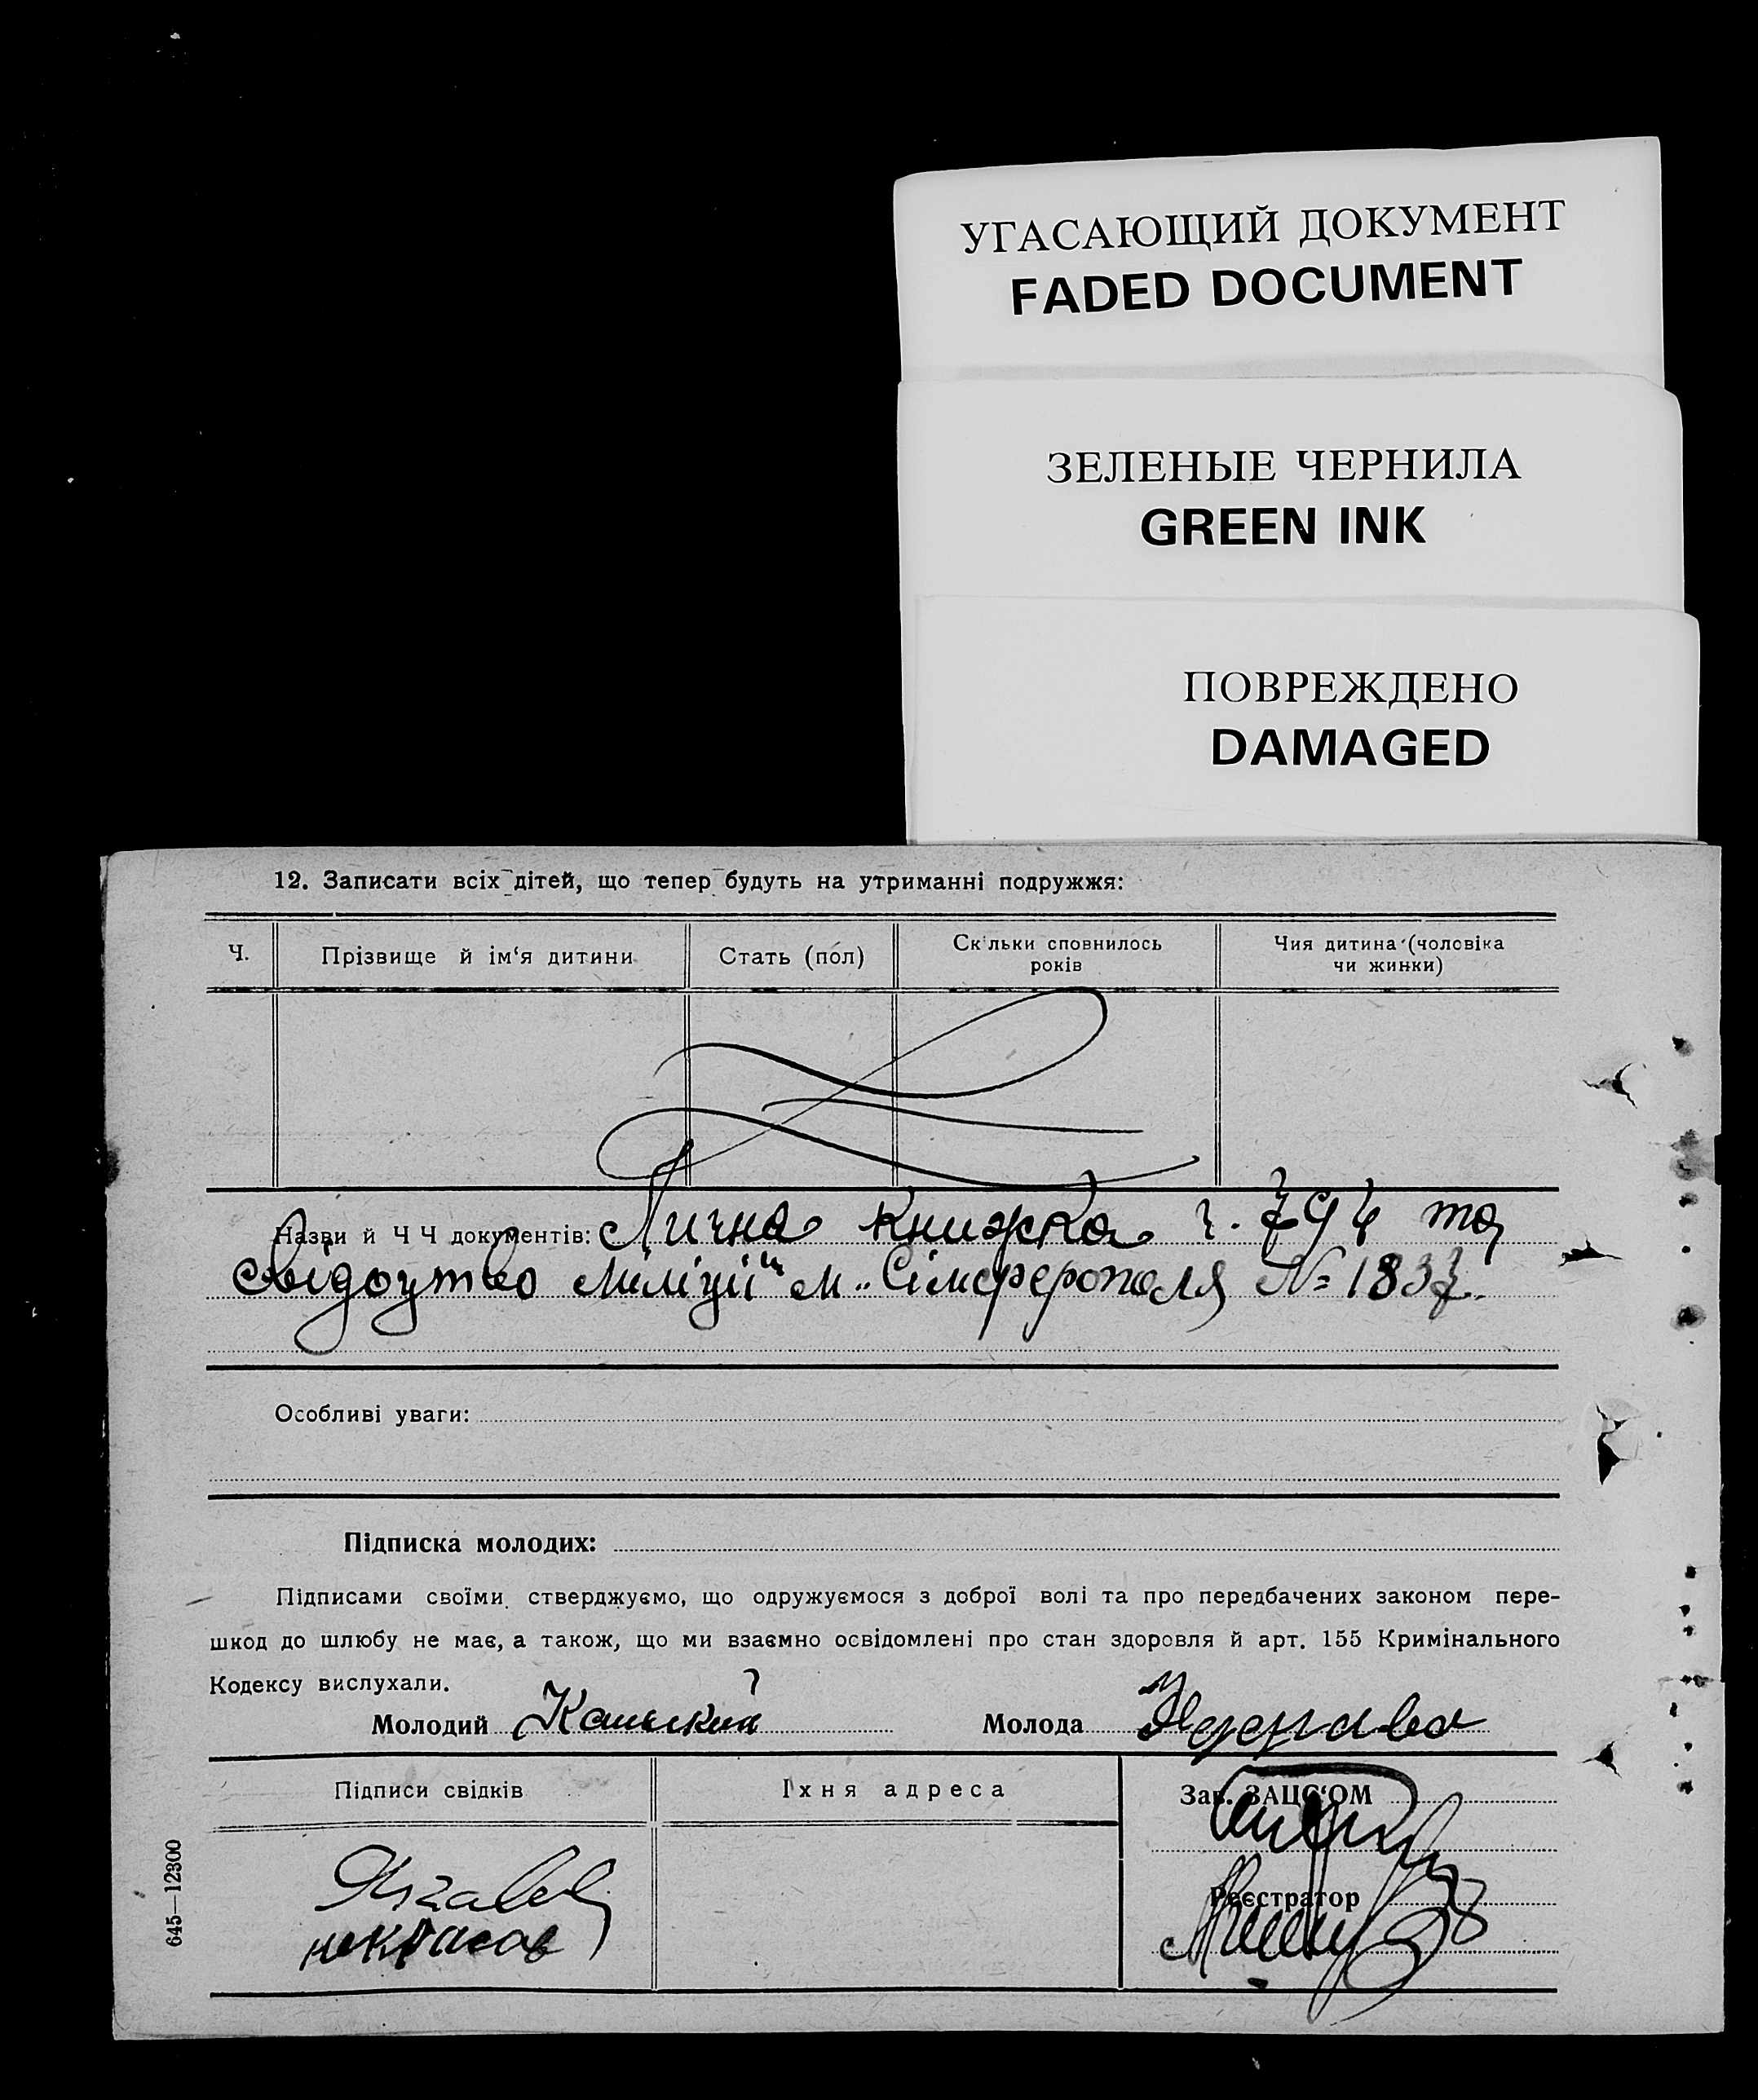 УГАСАЮЩИЙ ДОКУМЕНТ
FADED DOCUMENT
ЗЕЛЕНЫЕ ЧЕРНИЛА
GREEN INK
ПОВРЕЖДЕНО
DAMAGED
12. Записати всіх дітей, що тепер будуть на утриманні подружжя:
Ч.
Прізвище й ім‘я дитини
Стать (пол)
Скільки сповнилось
років
Чия дитина (чоловіка
чи жинки)
Назви й Ч Ч документів: Лична книжка ч. 794 та
свідоцтво міліціі м. Сімферополя № 1837.
Особливі уваги:
Підписка молодих:
Підписами своїми стверджуємо, що одружуємося з доброї волі та про передбачених законом пере-
шкод до шлюбу не має, а також, що ми взаємно освідомлені про стан здоровля й арт. 155 Кримінального
Кодексу вислухали.
Молодий
Молода
Підписи свідків
Їхня адреса
Зав. ЗАЦС‘ОМ
Реєстратор
некрасов
645—12300